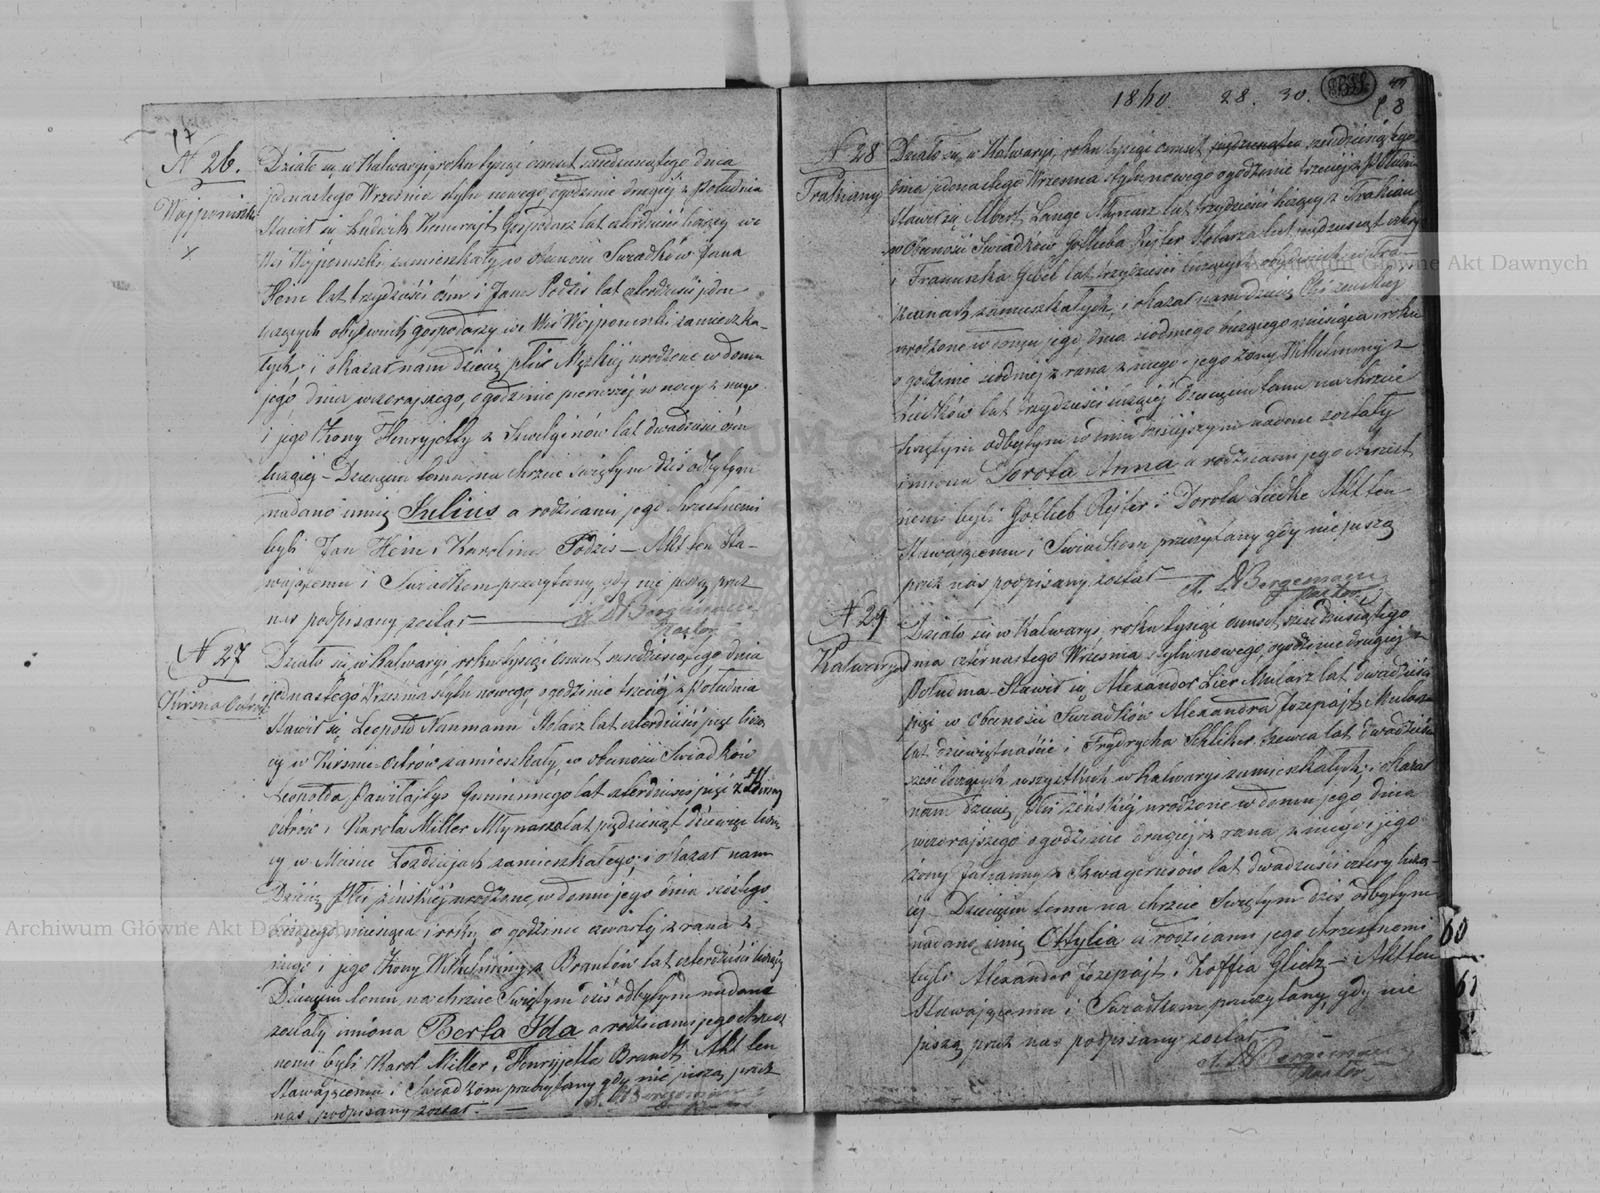 17
N 26.
Wojponiszki
x
Działo się w Kalwaryi, roku tysiąc ośmset sześdziesiątego dnia
jedenastego Września stylu nowego, o godzinie drugiéj z południa
Stawił się Ludwik Kunrajt Gospodarz lat czterdzieści liczący we
Wsi Wojponiszki zamieszkały, w obecności Świadków Jana
Hein lat trzydzieści ósm i Jana Podzis lat czterdzieści jeden
liczących obydwuch gospodarzy we Wsi Wojponiszki zamieszka-
łych; i okazał nam dziecię płci Męzkiéj urodzone w domu
jego dnia wczorajszego, o godzinie pierwszéj w nocy z niego
i jego Żony Henryjetty z lat dwadzieścia ósm
liczącéj – Dziecięciu temu na chrzcie Świętym dziś odbytym
nadano imię Julius a rodzicami jego chrzestnemi
byli Jan Hein i Karolina Podzis – Akt ten Sta-
wającemu i Świadkom przeczytany, gdy nie piszą przez
nas podpisany został
Bergemann
Pastor
N 27
Kirsna Ostrów
Działo się w Kalwaryi, roku tysiąc ośmset sześdziesiątego dnia
jedenastego Września stylu nowego, o godzinie trzeciéj z południa
Stawił się Leopold Naumann Stolarz lat czterdzieści pięć liczą-
cy w Kirsnie-Ostrów zamieszkały, w obecności Świadków
Leopolda Pawilajtys Gumiennego lat czterdzieści pięć z Kirsny
Ostrów i Karola Miller Młynarza lat pięćdziesiąt dziewięć liczą-
cy w Mieście Łozdziejach zamieszkałego; i okazał nam
Dziecię płci żeńskiéj urodzone, w domu jego dnia szóstego
bieżącego miesiąca i roku, o godzinie czwartéj z rana z
niego i jego Żony Wilhelminy z Brantów lat czterdzieści liczącéj
Dziecięciu temu na chrzcie Świętym dziś odbytym nadane
zostały imiona Berta Ida a rodzicami jego chrzest-
nemi byli Karol Miller i Henryjetta Brandt, Akt ten
Stawającemu i Świadkom przeczytany gdy nie piszą przez
nas podpisany został. –
Bergemann
1860 28. 30.
28
N 28
Trakiany
Działo się w Kalwaryi, roku tysiąc ośmset sześdziesiątego
dnia jedenastego Września stylu nowego o godzinie trzeciéj z południa
Stawił się Albert Lange Młynarz lat trzydzieści liczący z Trakian
w obecności Świadków Gotlieba Rejter Stolarza lat pięćdziesiąt cztery
i Franciszka Gebel lat trzydzieści liczących obydwuch w Tra-
kianach zamieszkałych, i okazał nam dziecię płci żeńskiéj
urodzone w domu jego, dnia siódmego bieżącego miesiąca i roku
o godzinie siódméj z rana z niego i jego żony Wilhelminy z
Liedków lat trzydzieści liczącéj Dziecięciu temu na chrzcie
Świętym odbytym w dniu dzisiejszym nadane zostały
imiona Dorota Anna a rodzicami jego chrzest-
nemi byli Gotlieb Rejter i Dorota Liedke Akt ten
Stawającemu i Świadkom przeczytany gdy nie piszą
przez nas podpisany został
Bergemann
Pastor
N 29
Kalwarya
Działo się w Kalwaryi, roku tysiąc ośmset sześdziesiątego
dnia czternastego Września stylu nowego, o godzinie drugiéj z
Południa – Stawił się Alexander Lier Mularz lat dwadzieścia
pięć w obecności Świadków Alexandra Jozepajt Mularza
lat dziewiętnaście i Frydrycha Schliker Szewca lat dwadzieścia
sześć liczących wszystkich w Kalwaryi zamieszkałych; i okazał
nam dziecię płci żeńskiéj urodzone w domu jego dnia
wczorajszego o godzinie drugiéj z rana, z niego i jego
żony Julianny z Szwagerusów lat dwadzieścia cztery liczą-
céj – Dziecięciu temu na chrzcie Świętym dziś odbytym
nadano imię Ottylia a rodzicami jego chrzestnemi
byli Alexander Jozepajt i Zoffia Glietz – Akt ten
Stawającemu i Świadkom przeczytany, gdy nie
piszą przez nas podpisany został
Bergemann
Pastor
60
Archiwum Główne Akt Dawnych
Archiwum Główne Akt Dawnych